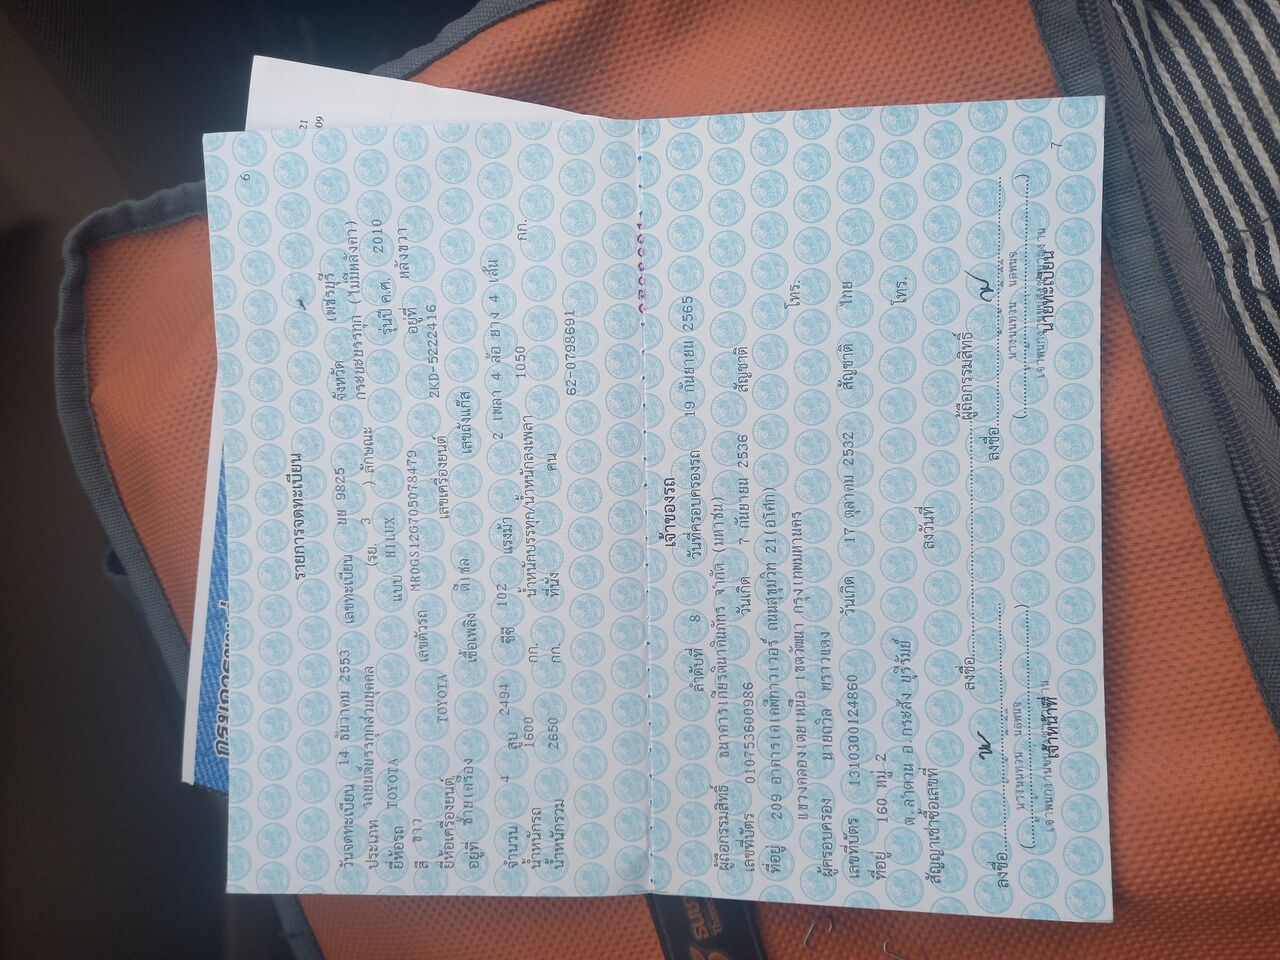 6
รายการจดทะเบียน
วันจดทะเบียน 14 ธันวาคม 2553 เลขทะเบียน บย 9825 จังหวัด เพชรบุรี
ประเภท รถยนต์บรรทุกส่วนบุคคล (รย. 3 ) ลักษณะ กระบะบรรทุก (ไม่มีหลังคา)
ยี่ห้อรถ TOYOTA แบบ HILUX รุ่นปี ค.ศ. 2010
สี ขาว เลขตัวรถ MR0GS12G705078479 อยู่ที่ หลังขวา
ยี่ห้อเครื่องยนต์ TOYOTA เลขเครื่องยนต์ 2KD-5222416
อยู่ที่ ซ้ายเครื่อง เชื้อเพลิง ดีเซล เลขถังแก๊ส
จำนวน 4 สูบ 2494 ซีซี 102 แรงม้า 2 เพลา 4 ล้อ ยาง 4 เส้น
น้ำหนักรถ 1600 กก. น้ำหนักบรรทุก/น้ำหนักลงเพลา 1050 กก.
น้ำหนักรวม 2650 กก. ที่นั่ง คน
62-0798691
เจ้าของรถ
ลำดับที่ 8 วันที่ครอบครองรถ 19 กันยายน 2565
ผู้ถือกรรมสิทธิ์ ธนาคารเกียรตินาคินภัทร จำกัด (มหาชน)
เลขที่บัตร 010753600986 วันเกิด 7 กันยายน 2536 สัญชาติ
ที่อยู่ 209 อาคารเคเคพีทาวเวอร์ ถนนสุขุมวิท 21(อโศก)
แขวงคลองเตยเหนือ เขตวัฒนา กรุงเทพมหานคร โทร.
ผู้ครอบครอง นายถวิล พราวแดง
เลขที่บัตร 1310300124860 วันเกิด 17 ตุลาคม 2532 สัญชาติ ไทย
ที่อยู่ 160 หมู่ 2
ต.ลำดวน อ.กระสัง บุรีรัมย์ โทร.
สัญญาเช่าซื้อเลขที่ ลงวันที่
ลงชื่อ ลงชื่อ ผู้ถือกรรมสิทธิ์
ลงชื่อ
เจ้าหน้าที่ นายทะเบียน
7